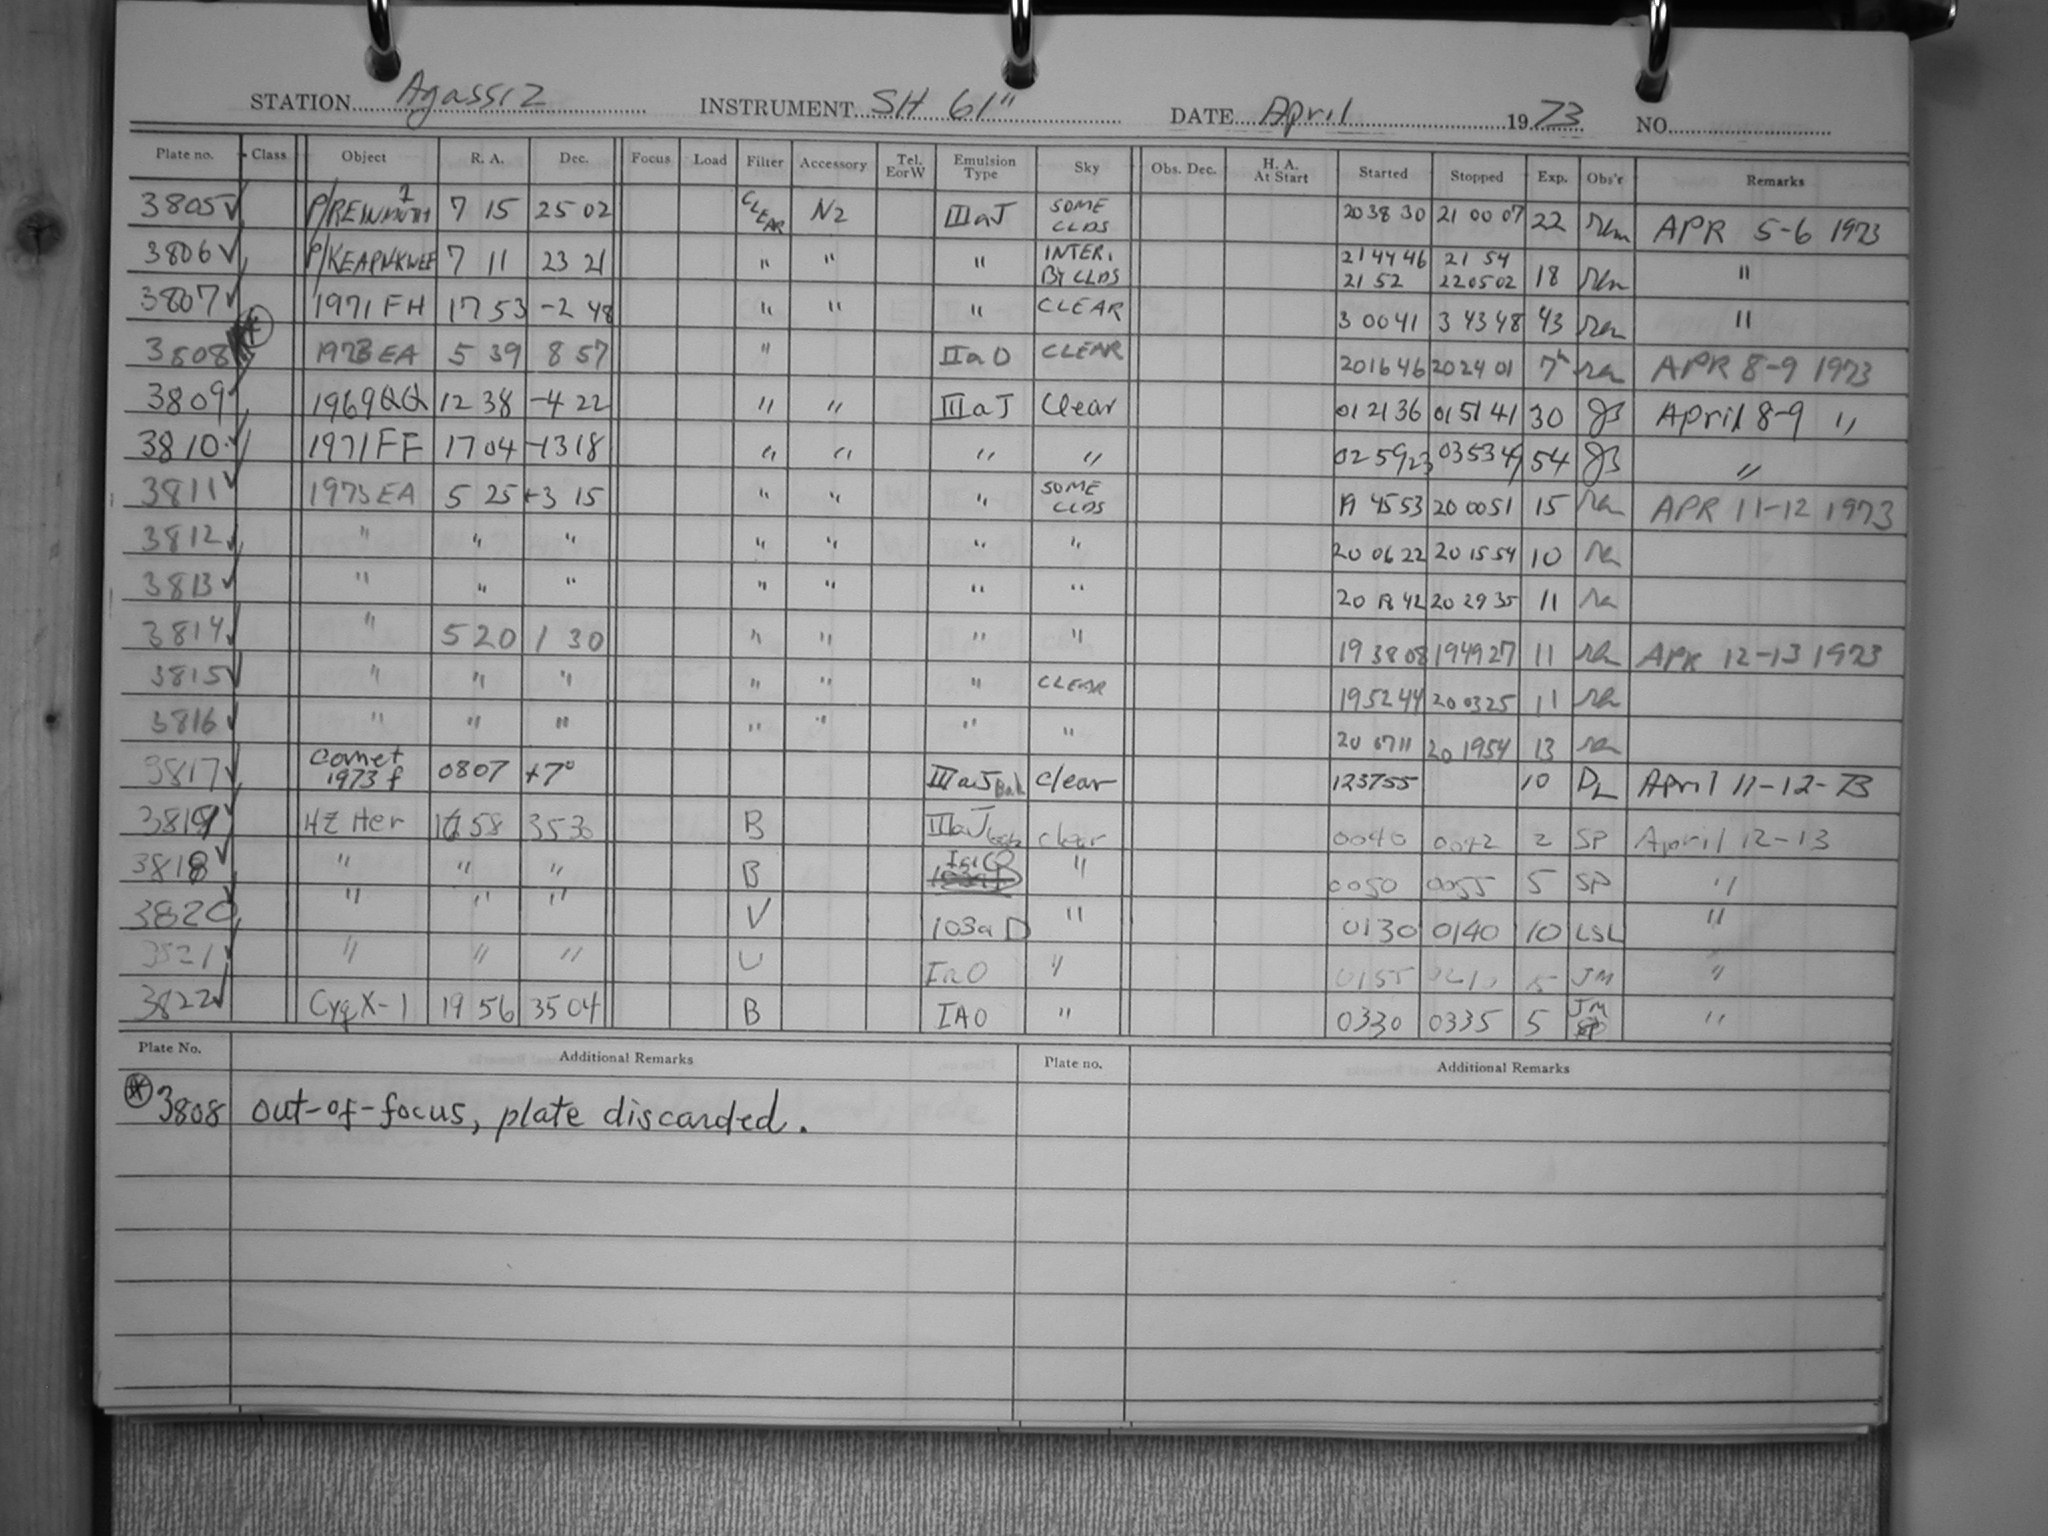 STATION Agassiz INSTRUMENT SH 61" DATE April 1973 NO.
Plate no. Class Object R. A. Dec. Focus Load Filter Accessory Tel. EorW Emulsion Type Sky Obs. Dec. H. A. At Start Started Stopped Exp. Obs'r Remarks
3805 ✓ 7 15 25 02 CLEAR N2 IIIaJ SOME CLDS 20 38 30 21 00 07 22 APR 5-6 1973
3806 ✓ 7 11 23 21 " " " INTER. BY CLDS 21 44 46 21 54 18 "
21 52 22 05 02
3807 ✓ 1971 FH 17 53 -2 48 " " " CLEAR 3 00 41 3 43 48 43 "
3808 1973 EA 5 39 8 57 " IIaO CLEAR 20 16 46 20 24 01 7 APR 8-9 1973
3809 ✓ 1969 QQ 12 38 -4 22 " " IIIaJ Clear 01 21 36 01 51 41 30 JB April 8-9 "
3810 ✓ 1971 FF 17 04 -13 18 " " " " 02 59 23 03 53 49 54 JB "
3811 ✓ 1973 EA 5 25 +3 15 " " " SOME CLDS 19 45 53 20 00 51 15 APR 11-12 1973
3812 ✓ " " " " " " " 20 06 22 20 15 54 10
3813 ✓ " " " " " " " 20 18 42 20 29 35 11
3814 ✓ " 5 20 1 30 " " " " 19 38 08 19 49 27 11 APR 12-13 1973
3815 ✓ " " " " " " CLEAR 19 52 44 20 03 25 11
3816 ✓ " " " " " " " 20 07 11 20 19 54 13
3817 ✓ Comet 1973 f 0807 +7° IIIaJ clear 123755 10 DL April 11-12-73
3819 ✓ HZ Her 16 58 35 30 B IIIaJ clear 0040 0042 2 SP April 12-13
3818 ✓ " " " B " 0050 0055 5 SP "
3820 ✓ " " " V 103a D " 0130 0140 10 LSL "
3821 ✓ " " " U IaO " 0155 0210 15 JM "
3822 ✓ Cyg X-1 19 56 35 04 B IAO " 0330 0335 5 JM "
Plate No. Additional Remarks Plate no. Additional Remarks
* 3808 out-of-focus, plate discarded.